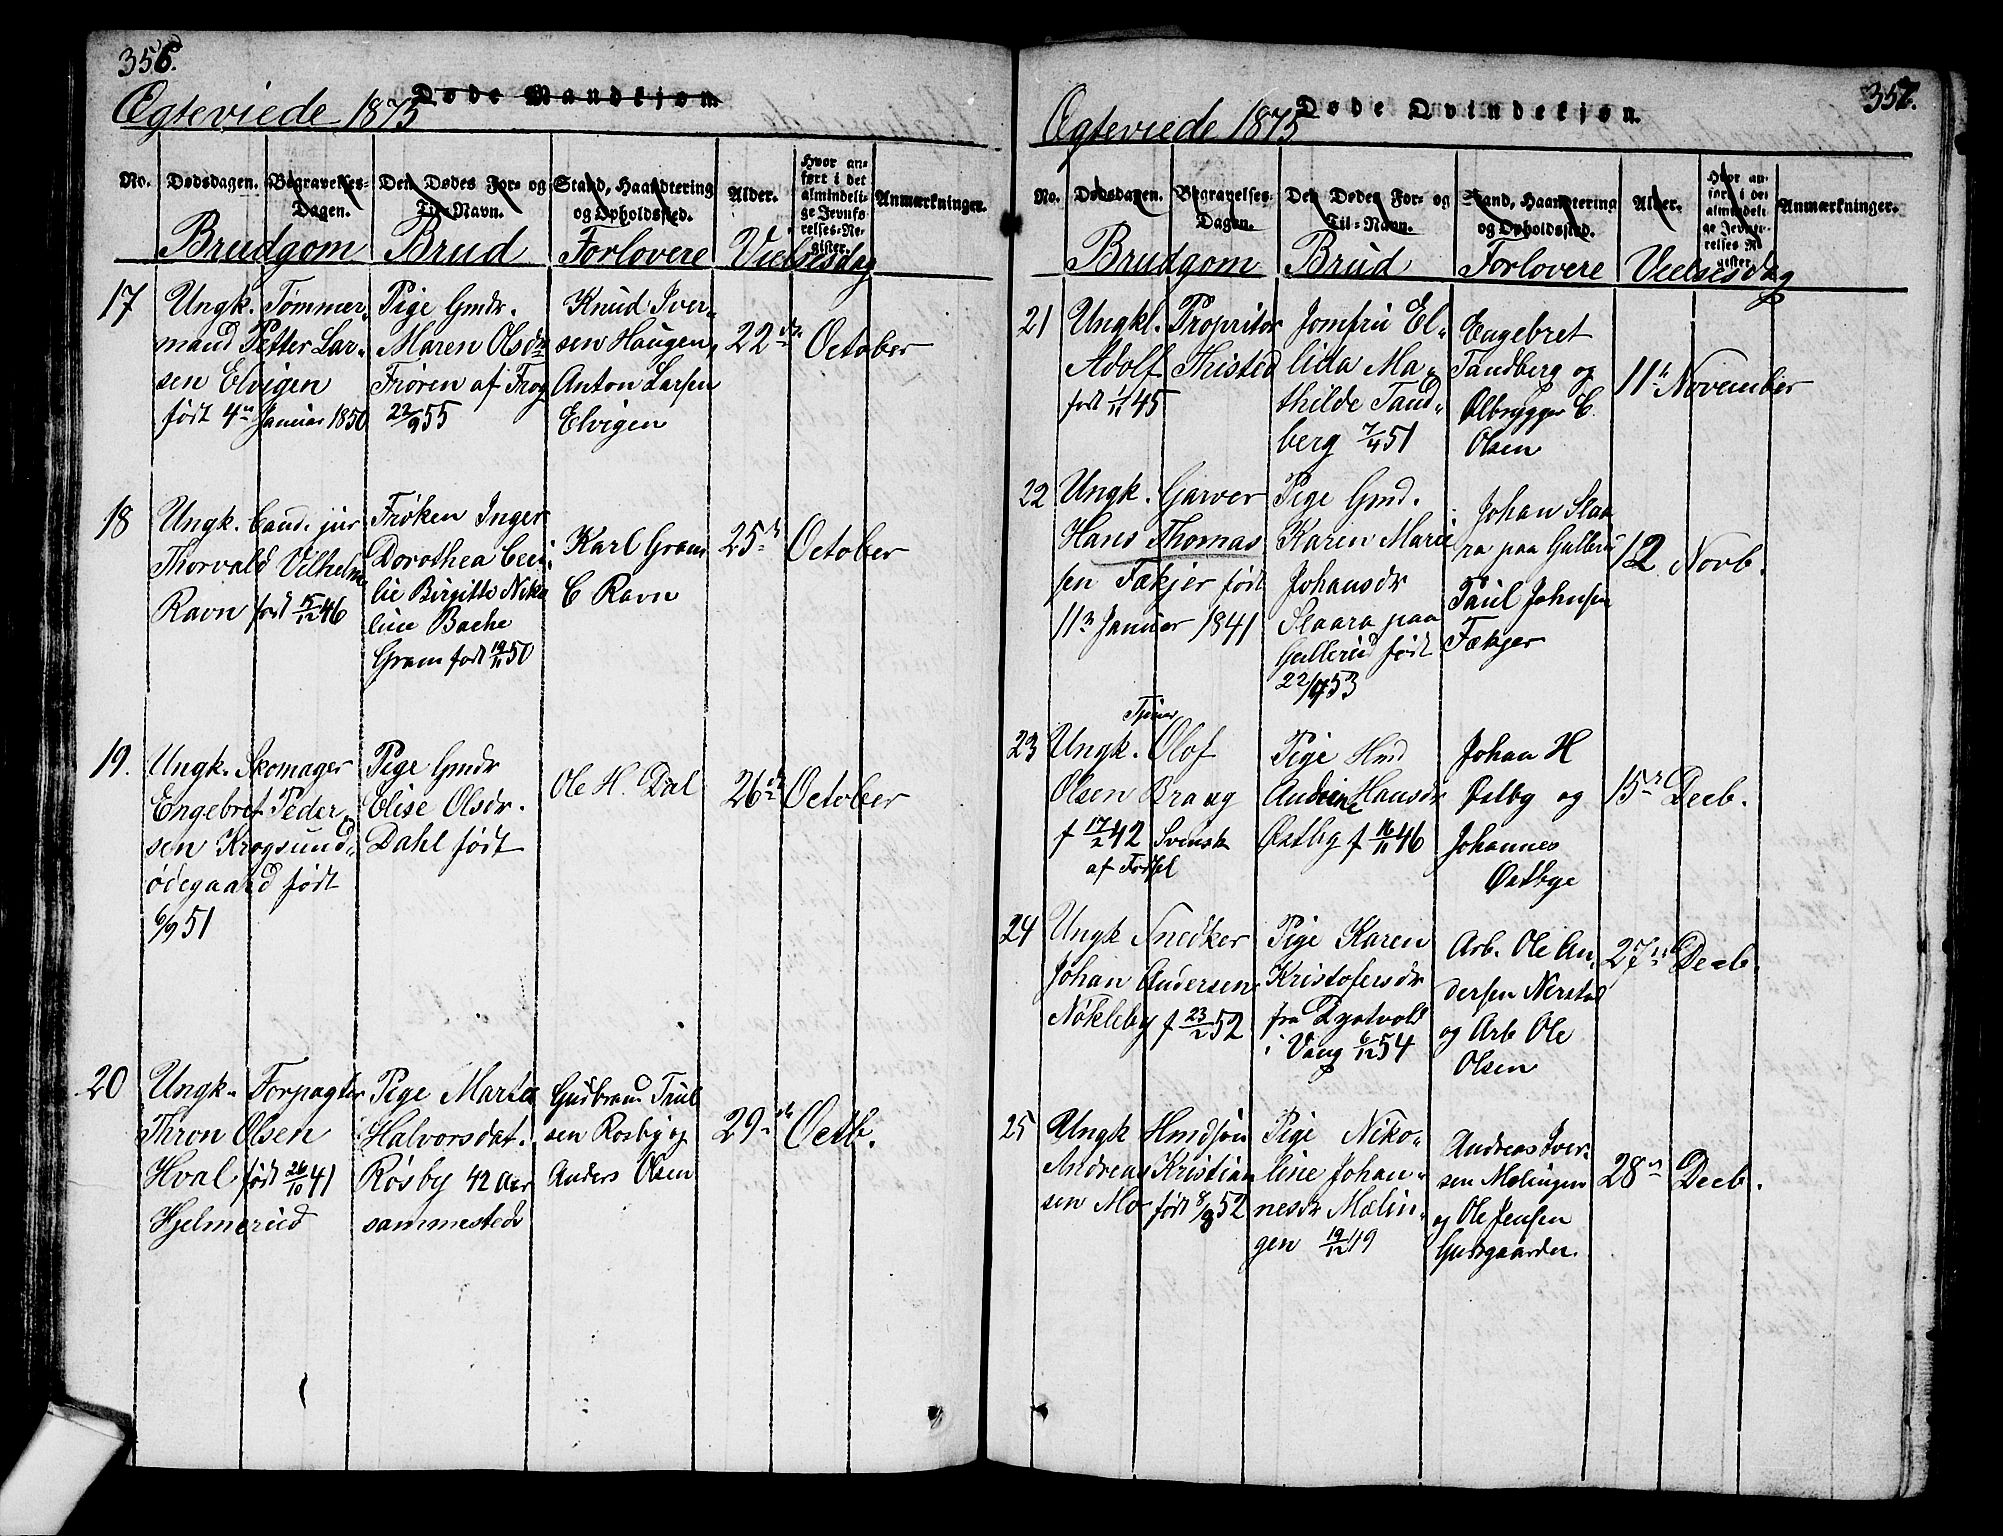 356.
Døde Mandkjøn.
Ægteviede 1875
No.
Dødsdagen.
Begravelses-
Dagen.
Den Dødes For- og
Til-Navn.
Stand, Haandtering
og Opholdssted.
Alder.
Hvor an-
ført i det
almindeli-
ge Jevnfø-
relses-Re-
gister.
Anmærkninger.
Brudgom
Brud
Forlovere
Vielsesdag
17
Ungk. Tømmer-
mand Petter Lar-
sen Elvigen
født 4de Januar 1850
Pige Gmdr.
Maren Olsdr
Frøren af Frog
22/9 55
Knud Iver-
sen Haugen,
Anton Larsen
Elvigen
22de October
18
Ungk. Cand. jur
Thorvald Vilhelm
Ravn født 15/12 46
Frøken Inger
Dorothea Ceci-
lie Birgitte Nika
line Bache
Gram født 19/11 50
Karl Gram
C Ravn
25de October
19.
Ungk. Skomager
Engebret Peder-
sen Krogsund-
ødegaard født
6/9 51
Pige Gmdr
Elise Olsdr.
Dahl født
Ole H. Dal
26de October
20
Ungk. Forpagter
Thron Olsen
Hval født 26/10 41
Hjelmerud
Pige Marte
Halvorsdat.
Røsby 42 Aar
sammesteds
Gudbrand Paul
sen Rosby og
Anders Olsen
29de Octb.
357.
Døde Qvindekjøn.
Ægteviede 1875
No.
Dødsdagen.
Begravelses-
Dagen.
Den Dødes For- og
Til-Navn.
Stand, Haandtering
og Opholdssted.
Alder.
Hvor an-
ført i det
almindeli-
ge Jevnfø-
relses-Re-
gister.
Anmærkninger.
Brudgom
Brud
Forlovere
Vielsesdag
21
Ungkl. Propritær
Adolf Thisted
født 1/11 45
Jomfru El-
lida Ma-
thilde Tand-
berg 7/4 51
Engebret
Tandberg og
Ølbrygger C.
Olsen
11te November
22
Ungk. Garver
Hans Thomas
sen Fækjer født
11te Januar 1841
Pige Gmd.
Karen Marie
Johansdr
Slaara paa
Gallerud født
22/7 53
Johan Slaa
ra paa Gallerud
Paul Johnsen
Fækjer
12 Novb.
23
Tjener
Ungk. Olof
Olsen Braug
f 17/2 42 Svensk
af Fødsel
Pige Hmd
Andrine Hansdr
Østby f 16/11 46
Johan H
Østby og
Johannes
Østbye
15de Decb.
24
Ungk Snedker
Johan Andersen
Nøkleby f 23/2 52
Pige Karen
Kristofersdr
fra
i Vang 6/12 54
Arb. Ole An-
dersen Nerstad
og Arb Ole
Olsen
27de Decb.
25
Ungk Hmdsøn
Andreas Kristian
sen Mo født 8/9 52
Pige Niko-
line Johan-
nesdr Mælin-
gen 19/12 49
Andreas Iver-
sen Mælingen
og Ole Jensen
Gubsgaarden.
28de Decb.